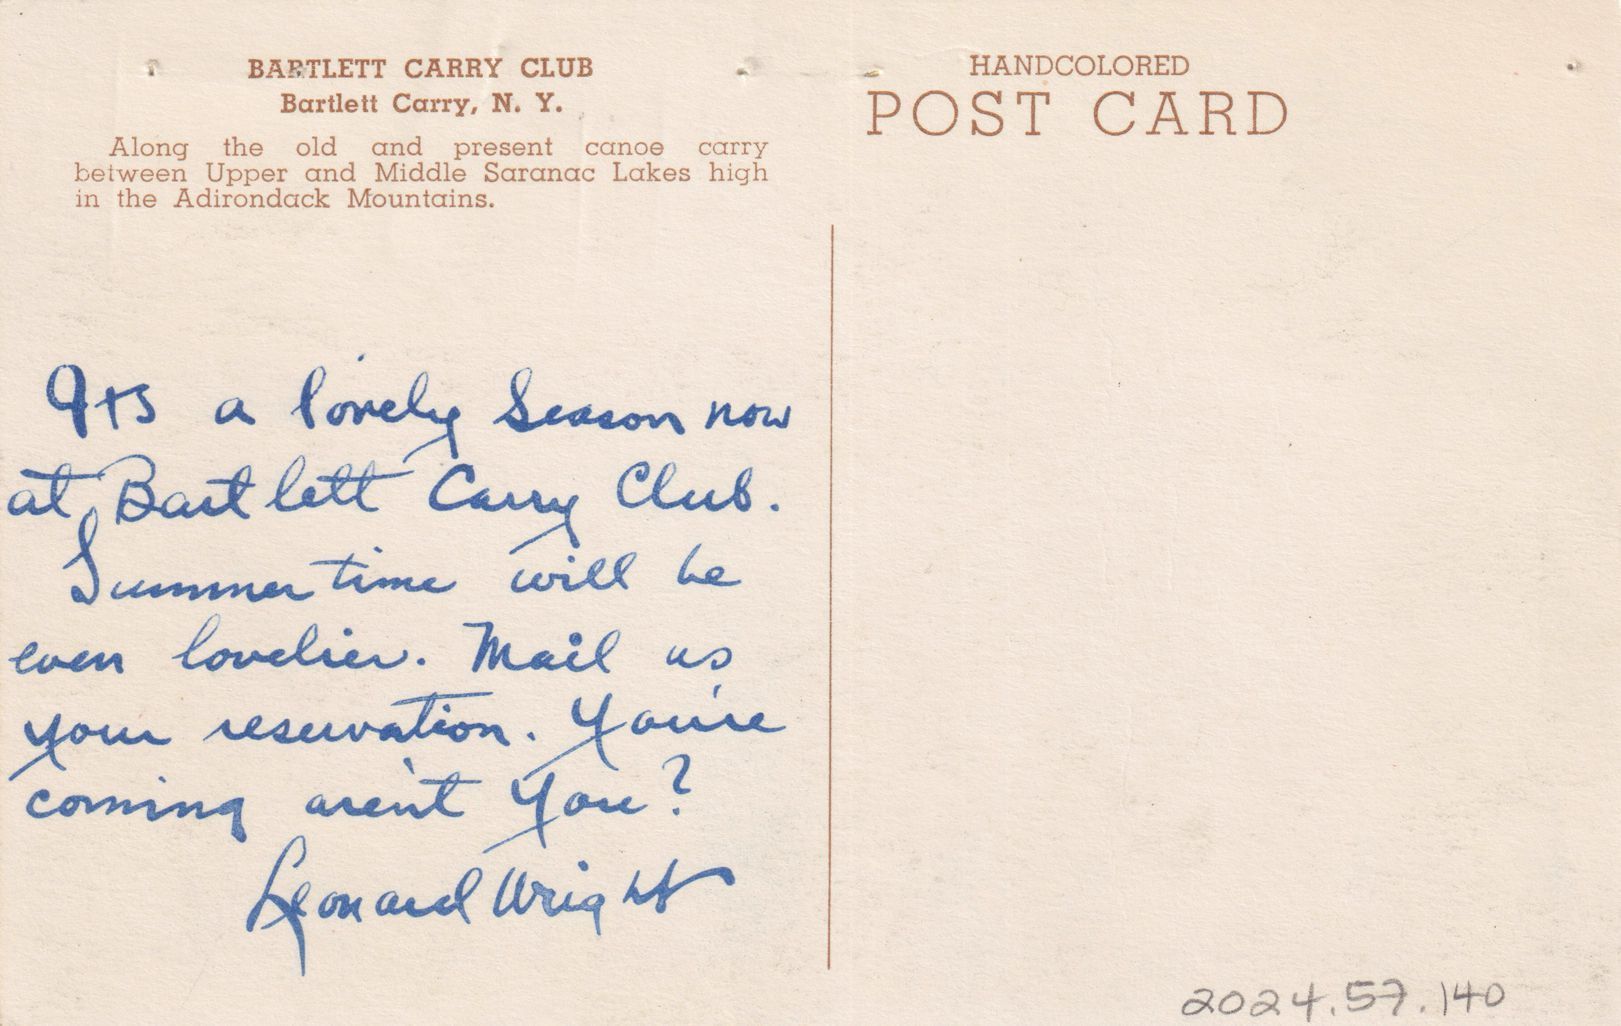 BARTLETT CARRY CLUB
Bartlett Carry, N. Y.
Along the old and present canoe carry
between Upper and Middle Saranac Lakes high
in the Adirondack Mountains.
HANDCOLORED
POST CARD
Its a lovely Season now
at Bartlett Carry Club.
Summertime will be
even lovelier. Mail us
your reservation. You're
coming aren't you?
Leonard Wright
2024.57.140